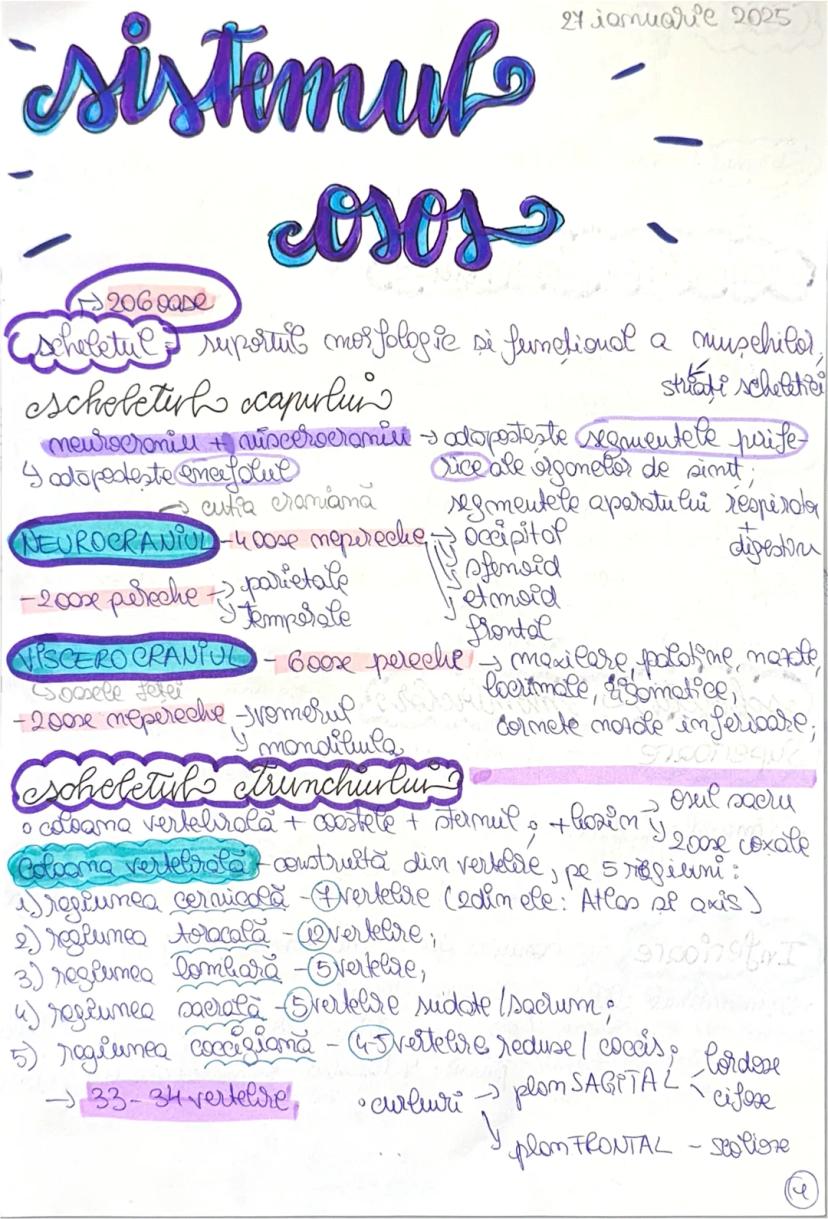 27 ianuarie 2025
sistemul
osos
→ 206 oase
scheletul - suportul morfologic si funcțional a mușchilor,
striați scheletici
scheletul capului
neurocraniu + viscerocraniu → adăpostește segmentele perife-
↳ adăpostește encefalul
ricele ale organelor de simț;
→ cutia craniană
segmentele aparatului respirator
+
digestiv
NEUROCRANIUL - 4 oase nepereche → occipital
sfenoid
etmoid
frontal
- 2 oase pereche → parietale
temporale
VISCEROCRANIUL - 6 oase pereche → maxilare, palatine, nazale,
lacrimale, zigomatice,
cornete nazale inferioare;
↳ oasele feței
- 2 oase nepereche → vomerul
mandibula
scheletul trunchiului
• coloana vertebrală + coastele + sternul; + bazin → osul sacru
2 oase coxale
coloana vertebrală - construită din vertebre, pe 5 regiuni:
1) regiunea cervicală - 7 vertebre (2 din ele: Atlas și axis)
2) regiunea toracală - 12 vertebre;
3) regiunea lombară - 5 vertebre;
4) regiunea sacrală - 5 vertebre sudate / sacrum;
5) regiunea coccigiană - 4-5 vertebre reduse / coccis;
→ 33 - 34 vertebre
• curburi → plan SAGITAL
lordoze
cifoze
plan FRONTAL - scolioze
4